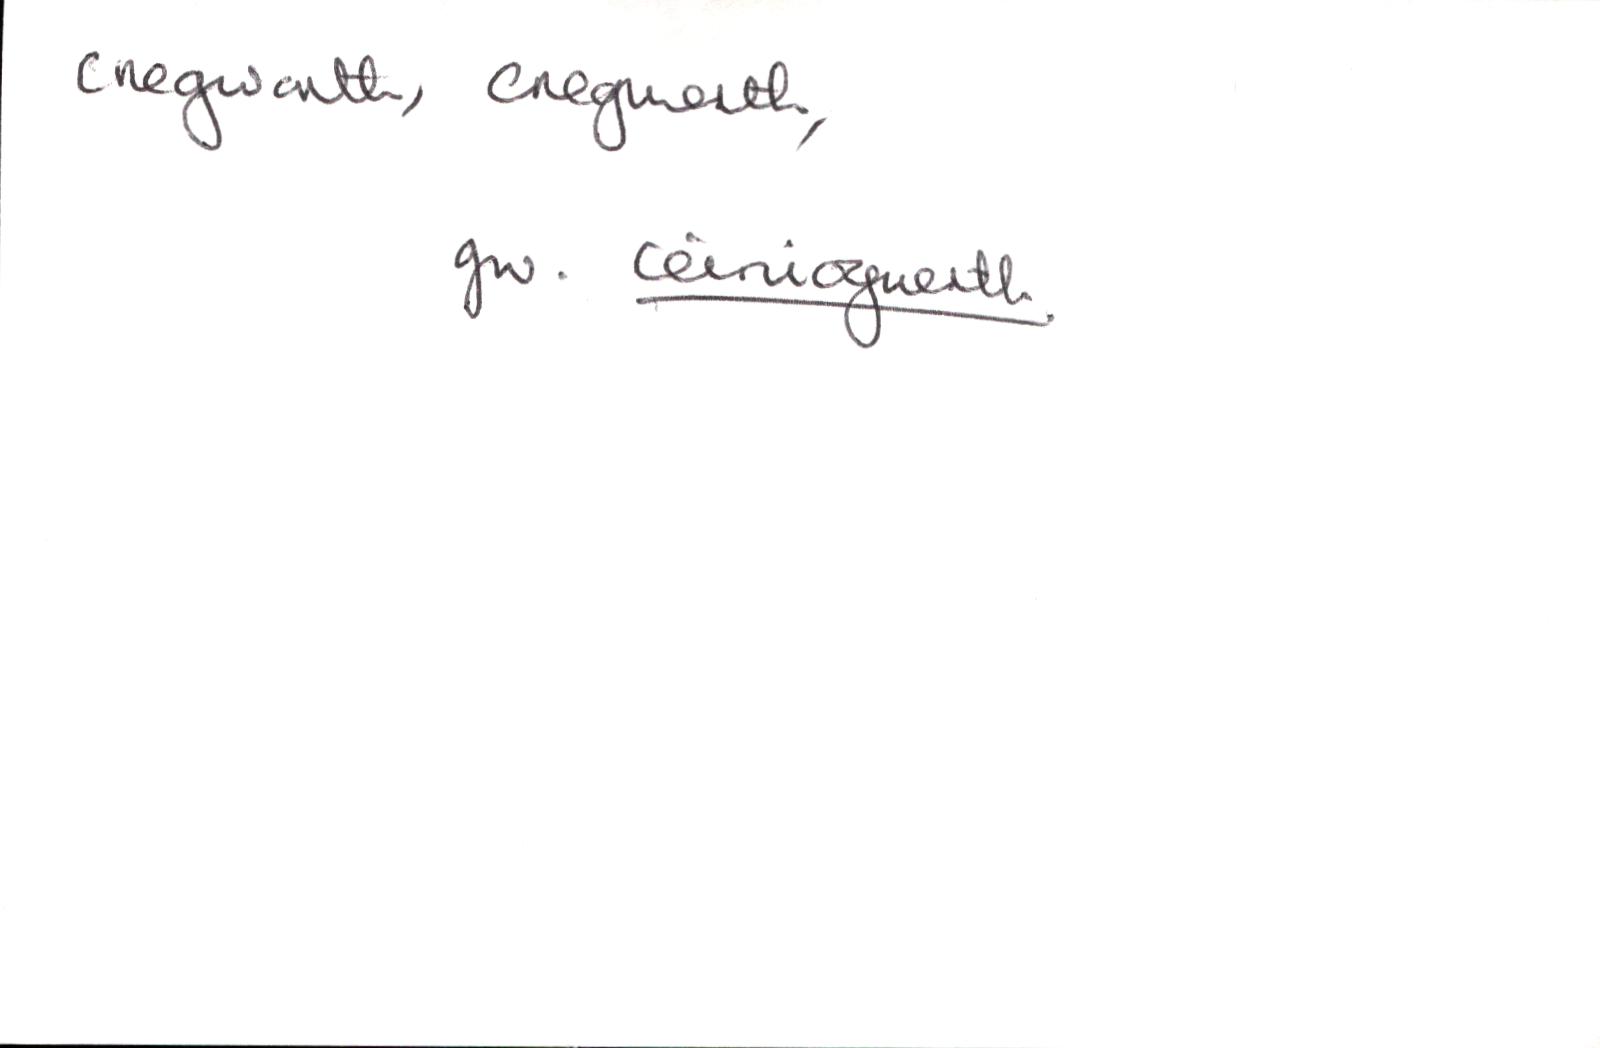 cnegwarth, cnegwerth,
gw. ceiniogwerth.